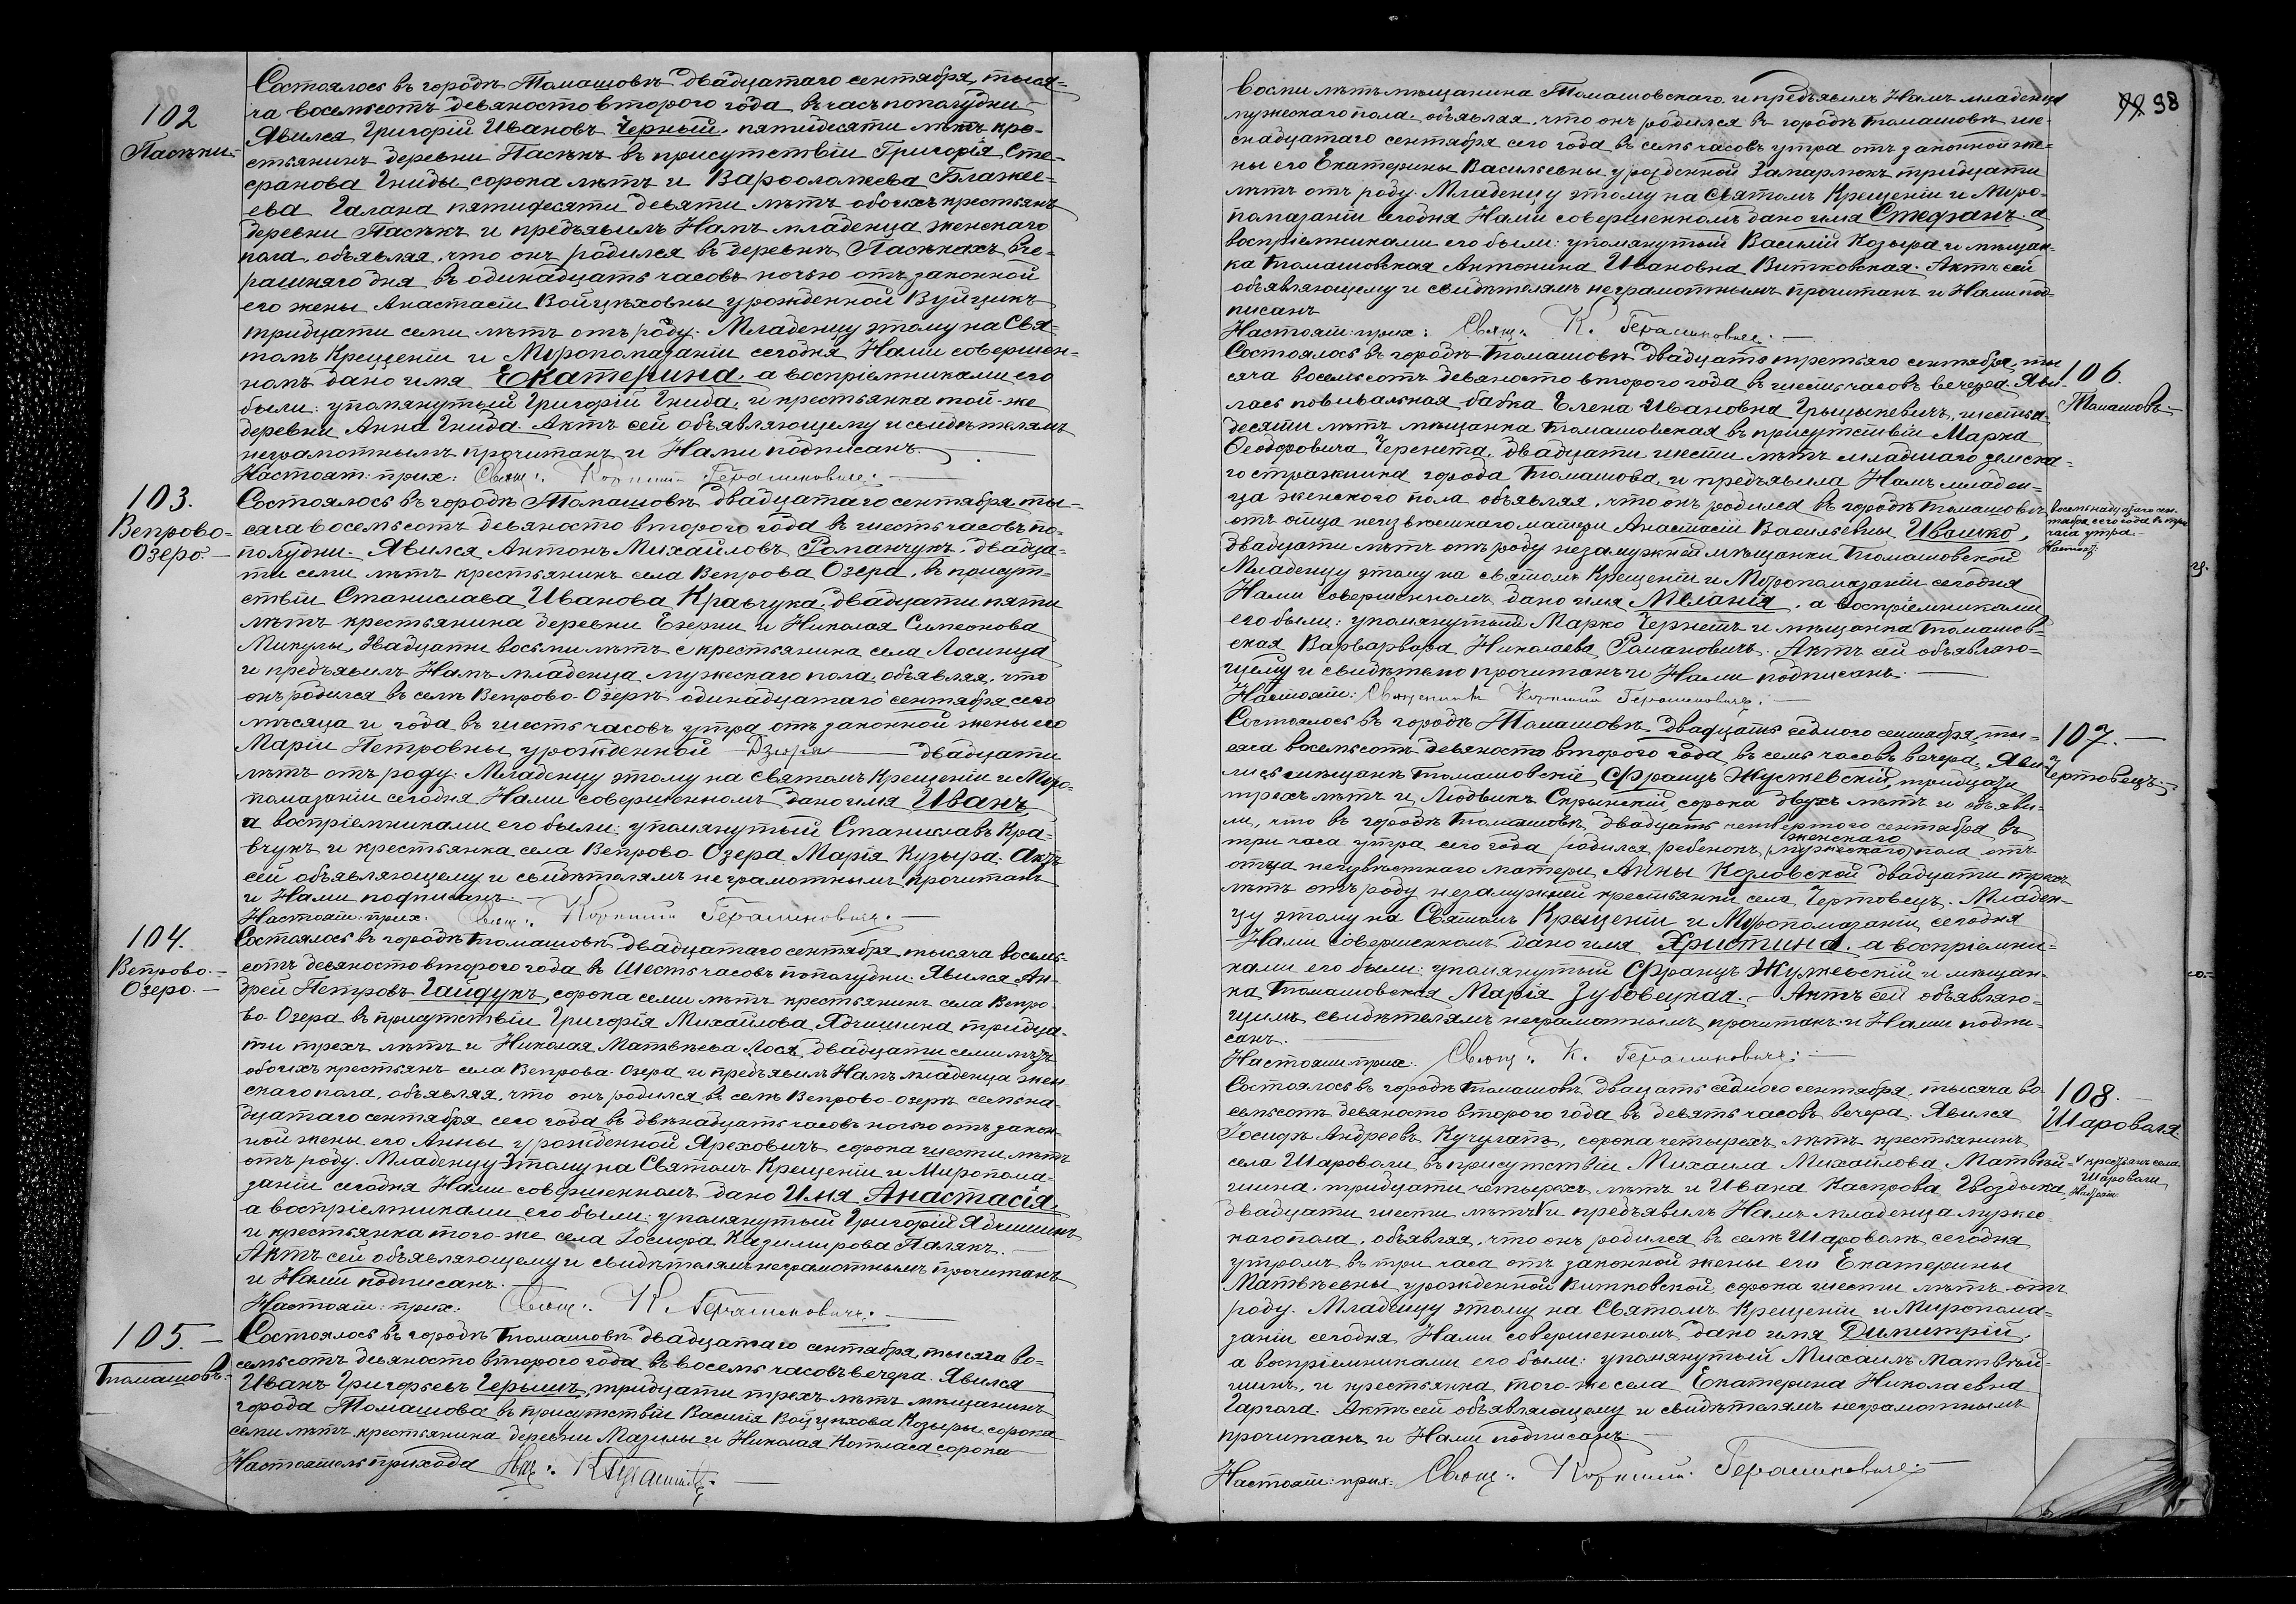 102
Пасѣки.-
Состоялось въ городѣ Томашовѣ двадцатаго сентября, тыся-
ча восемьсотъ девяносто второго года въ часъ пополудни
Явился Григорій Ивановъ Черный, пятидесяти лѣтъ кре-
стьянинъ деревни Пасѣкъ въ присутствіи Григорія Сте-
фанова Гниды сорока лѣтъ и Варфоломея Блажее-
ева Галана пятидесяти девяти лѣтъ обоихъ крестьянъ
деревни Пасѣкъ и предъявилъ Намъ младенца женскаго
пола, объявляя, что онъ родился въ деревнѣ Пасѣкахъ вче-
рашняго дня въ одинадцать часовъ ночью отъ законной
его жены Анастасіи Войцѣховны урожденной Вуйцикъ
тридцати семи лѣтъ отъ роду. Младенцу этому на Свя-
томъ Крещеніи и Мѵропомазаніи сегодня Нами совершен-
номъ дано имя Екатерина, а воспріемниками его
были: упомянутый Григорій Гнида, и крестьянка той-же
деревни Анна Гнида. Актъ сей объявляющему и свидѣтелямъ
неграмотнымъ прочитанъ и Нами подписанъ.
Настоят: прих: Свящ: Корнилій Герасимовичъ.
103.
Вепрово-
Озеро.-
Состоялось въ городѣ Томашовѣ двадцатаго сентября ты-
сяча восемьсотъ девяносто второго года въ шесть часовъ по-
полудни. Явился Антонъ Михайловъ Романчукъ, двадца-
ти семи лѣтъ крестьянинъ села Вепрова Озера, въ присут-
ствіи Станислава Иванова Кравчука, двадцати пяти
лѣтъ крестьянина деревни Езерни и Николая Симеонова
Микулы, двадцати восьми лѣтъ крестьянина села Лосинца
и предъявилъ Намъ младенца мужескаго пола, объявляя, что
онъ родился въ селѣ Вепрово-Озерѣ одинадцатаго сентября сего
мѣсяца и года въ шесть часовъ утра отъ законной жены его
Маріи Петровны урожденной Дзюра двадцати
лѣтъ отъ роду. Младенцу этому на Святомъ Крещеніи и Мѵро-
помазаніи сегодня Нами совершенномъ дано имя Иванъ,
а воспріемниками его были: упомянутый Станиславъ Кра-
вчукъ и крестьянка села Вепрово-Озера Марія Кузыра. Актъ
сей объявляющему и свидѣтелямъ неграмотнымъ прочитанъ
и Нами подписанъ.
Настоят: прих: Свящ: Корнилій Герасимовичъ.
104.
Вепрово.-
Озеро.-
Состоялось въ городѣ Томашовѣ двадцатаго сентября, тысяча восемь-
сотъ девяносто второго года въ шесть часовъ пополудни. Явился Ан-
дрей Петровъ Гайдукъ, сорока семи лѣтъ крестьянинъ села Вепро-
во-Озера въ присутствіи Григорія Михайлова Ядчишина тридца-
ти трехъ лѣтъ и Николая Матвѣева Лося, двадцати семи лѣтъ
обоихъ крестьянъ села Вепрова-Озера и предъявилъ Намъ младенца жен-
скаго пола, объявляя, что онъ родился въ селѣ Вепрово-озерѣ семьна-
дцатаго сентября сего года въ двѣнадцать часовъ ночью отъ закон-
ной жены его Анны урожденной Яреховичъ сорока шести лѣтъ
отъ роду. Младенцу этому на Святомъ Крещеніи и Миропома-
заніи сегодня Нами совершенномъ дано имя Анастасія,
а воспріемниками его были: упомянутый Григорій Ядчишинъ
и крестьянка того-же села Іосифа Казимирова Палякъ.
Актъ сей объявляющему и свидѣтелямъ неграмотнымъ прочитанъ
и Нами подписанъ.
Настоят: прих: Свящ: К. Герасимовичъ.
105.-
Томашовъ.-
Состоялось въ городѣ Томашовѣ двадцатаго сентября, тысяча во-
семьсотъ девяносто второго года, въ восемь часовъ вечера. Явился
Иванъ Григорьевъ Чернишъ, тридцати трехъ лѣтъ мѣщанинъ
города Томашова въ присутствіи Василія Войцѣхова Козыры сорока
семи лѣтъ крестьянина деревни Мазилы и Николая Котласа сорока
Настоятель прихода
98
восьми лѣтъ мѣщанина Томашовскаго, и предъявилъ Намъ младенца
мужескаго пола, объявляя, что онъ родился въ городѣ Томашовѣ ше-
снадцатаго сентября сего года въ семь часовъ утра отъ законной же-
ны его Екатерины Васильевны урожденной Гапарлюкъ тридцати
лѣтъ отъ роду. Младенцу этому на Святомъ Крещеніи и Мѵро-
помазаніи сегодня Нами совершенномъ дано имя Стефанъ, а
воспріемниками его были: упомянутый Василій Козыра и мѣщан-
ка Томашовская Антонина Ивановна Витковская. Актъ сей
объявляющему и свидѣтелямъ неграмотнымъ прочитанъ и Нами под-
писанъ
Настоят: прих: Свящ: К. Герасимовичъ.
106.
Томашовъ-
Состоялось въ городѣ Томашовѣ двадцать третьяго сентября, ты-
сяча восемьсотъ девяносто второго года въ шесть часовъ вечера. Яви-
лась повивальная бабка Елена Ивановна Грыцыкевичъ, шести-
десяти лѣтъ мѣщанка Томашовская въ присутствіи Марка
Ѳеодоровича Чернета, двадцати шести лѣтъ младшаго земска-
го стражника города Томашова, и предъявила Намъ младен-
ца женского пола объявляя, что онъ родился въ городѣ Томашовѣ
восемьнадцатаго сен-
тября сего года въ три
часа утра-
Настоят:
отъ отца неизвѣстнаго матери Анастасіи Васильевны Ивашко,
двадцати лѣтъ отъ роду незамужней мѣщанки Томашовской
Младенцу этому на святомъ Крещеніи и Мѵропомазаніи сегодня
Нами совершенномъ дано имя Меланія, а воспріемниками
его были: упомянутый Марко Чернетъ и мѣщанка Томашов-
ская Варварвара Николаева Романовичъ. Актъ сей объявляю-
щему и свидѣтелю прочитанъ и Нами подписанъ.
Настоят: Священникъ Корнилій Герасимовичъ.
107.-
Чертовецъ.-
Состоялось въ городѣ Томашовѣ двадцать седмого сентября, ты-
сяча восемьсотъ девяносто второго года въ семь часовъ вечера. Яви-
лись мѣщане Томашовскіе Францъ Жулкевскій, тридцати
трехъ лѣтъ и Людвикъ Скрынскій сорока двухъ лѣтъ и объяви-
ли, что въ городѣ Томашовѣ двадцать четвертого сентября въ
женскаго
три часа утра сего года родился ребенокъ (мужескаго) пола отъ
отца неизвѣстнаго матери Анны Козловской двадцати трехъ
лѣтъ отъ роду незамужней крестьянки села Чертовецъ. Младен-
цу этому на Святомъ Крещеніи и Мѵропомазаніи сегодня
Нами совершенномъ дано имя Христина, а воспріемни-
ками его были: упомянутый Францъ Жулкевскій и мѣщан-
ка Томашовская Марія Зубовецкая.- Актъ сей объявляю-
щимъ свидѣтелямъ неграмотнымъ прочитанъ и Нами подпи-
санъ.
Настоят: прих: Свящ: К. Герасимовичъ.
108.-
Шароволя
Состоялось въ городѣ Томашовѣ двацать седмого сентября, тысяча во-
семьсотъ девяносто второго года въ девять часовъ вечера. Явился
Іосифъ Андреевъ Кучугатъ, сорока четырехъ лѣтъ крестьянинъ
села Шароволи, въ присутствіи Михаила Михайлова Матвѣй-
шина, тридцати четырехъ лѣтъ и Ивана Каспрова Гвоздыка
крестьянъ села
Шароволи
Настоят:
двадцати шести лѣтъ и предъявилъ Намъ младенца мужес-
каго пола, объявляя, что онъ родился въ селѣ Шароволѣ сегодня
утромъ въ три часа отъ законной жены его Екатерины
Матвѣевны урожденной Витковской, сорока шести лѣтъ отъ
роду. Младенцу этому на Святомъ Крещеніи и Миропома-
заніи сегодня Нами совершенномъ дано имя Димитрій,
а воспріемниками его были: упомянутый Михаилъ Матвѣй-
шинъ, и крестьянка того-же села Екатерина Николаевна
Гаргола. Актъ сей объявляющему и свидѣтелямъ неграмотнымъ
прочитанъ и Нами подписанъ.
Настоят: прих: Свящ: Корнилій Герасимовичъ